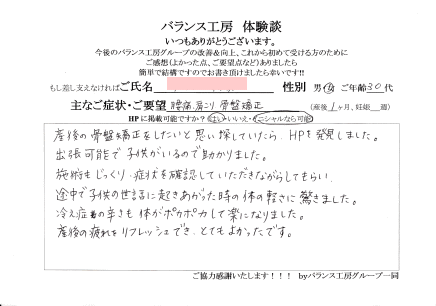 バランス工房 体験談
いつもありがとうございます。
今後のバランス工房グループの改善&向上、これから初めて受ける方のために
ご感想(よかった点、ご要望点など)ありましたら
簡単で結構ですのでお書き頂けましたら幸いです!!
もし差し支えなければご氏名 性別 男・女 ご年齢30代
主なご症状・ご要望 腰痛、肩こり 骨盤矯正 (産後1ヶ月、妊娠 週)
HPに掲載可能ですか?(はい・いいえ・イニシャルなら可能)
産後の骨盤矯正をしたいと思い探していたら、HPを発見しました。
出張可能で子供がいるので助かりました。
施術もじっくり、症状を確認していただきながらしてもらい、
途中で子供の世話に起きあがった時の体の軽さに驚きました。
冷え症の辛さも体がポカポカして楽になりました。
産後の疲れをリフレッシュでき、とてもよかったです。
ご協力感謝いたします!!! byバランス工房グループ一同